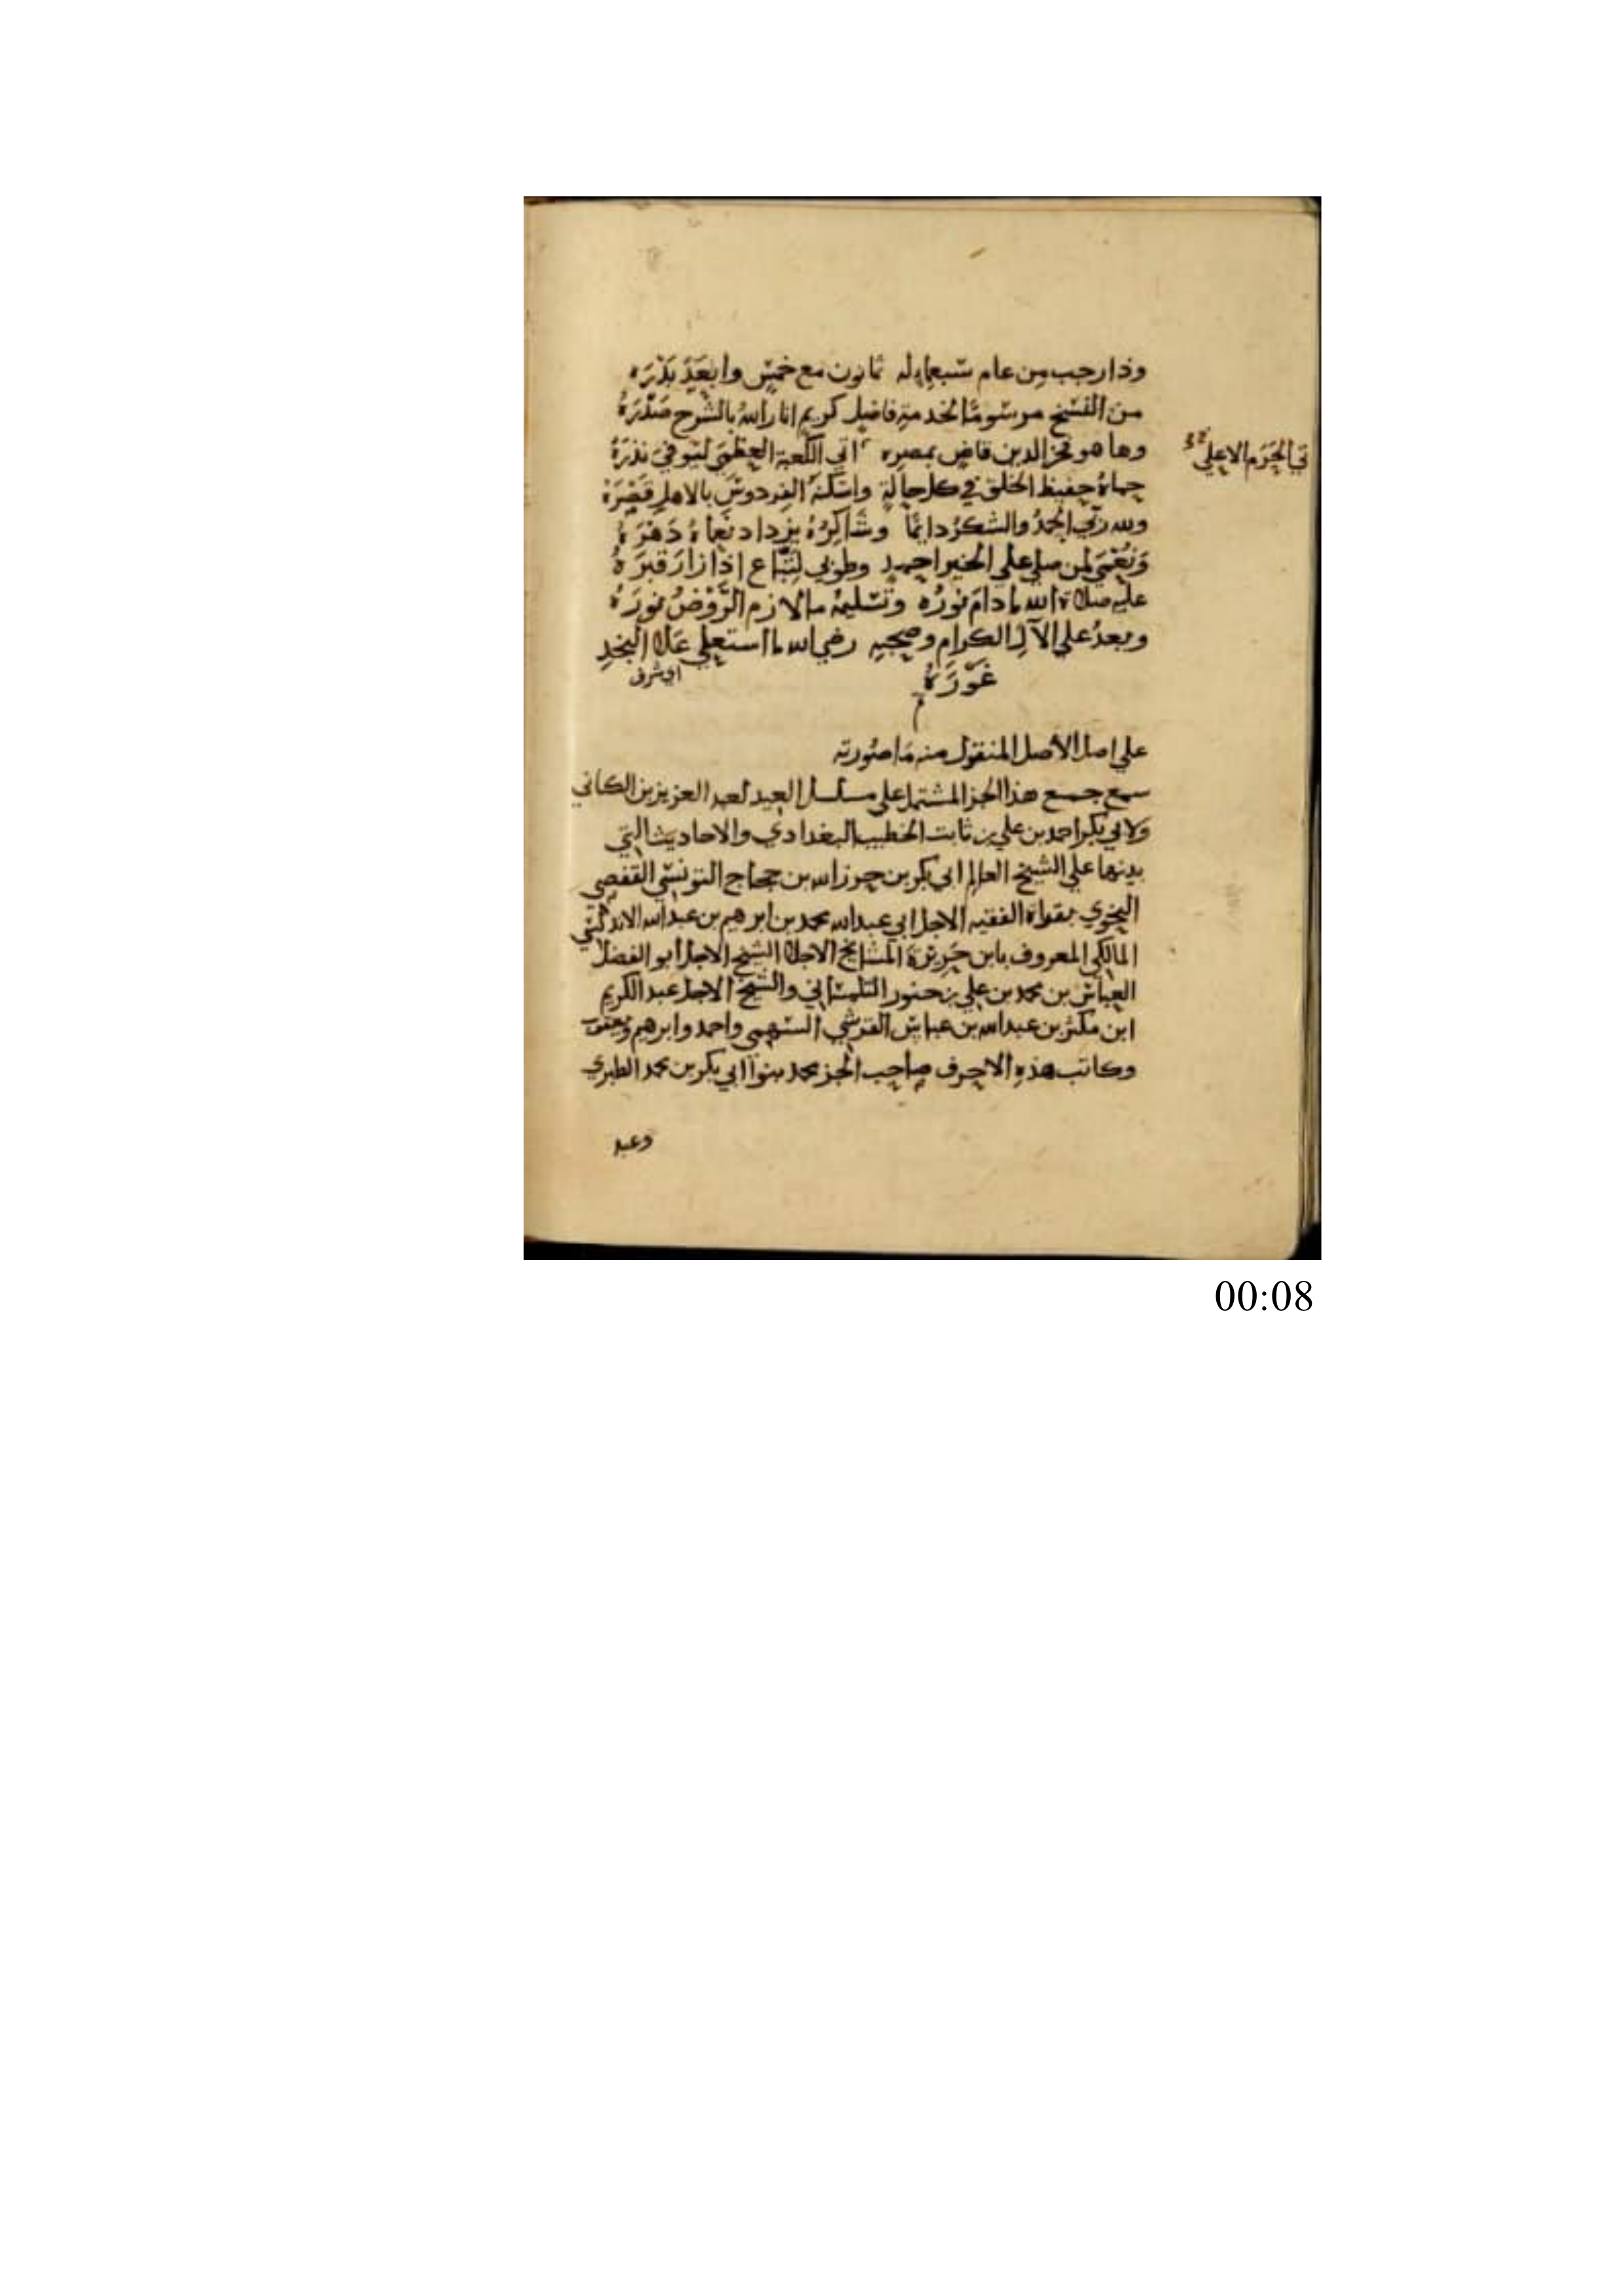 وذا رجب من عام سبعماية ثمانون مع خمس وابعد بدره
من النسخ مرسوما لخدمة فاضل كريم انار الله بالشرح صدره
وها هو فخر الدين قاض بمصره اتى الكعبة العظمى ليوفي نذره
في الحرم الاعلي
حماه حفيظ الخلق في كل حالة واسكنه الفردوس بالاهل قصره
ولله ربي الحمد والشكر دايما وشاكره يزداد نعماه دهره
ونعمى لمن صلى على الخير احمد وطوبي لتباع اذا زار قبره
عليه صلاة الله ما دام نوره وتسليمه ما لازم الروض نوره
وبعد علي الآل الكرام وصحبه رضي الله ما استعلي علا النجد
غوره
اي شرف
علي اصل الأصل المنقول منه ما صورته
سمع جميع هذا الجزء المشتمل على مسلسل العيد لعبد العزيز بن الكتاني
ولابي بكر احمد بن علي بن ثابت الخطيب البغدادي والاحاديث التي
بينهما على الشيخ العالم ابي بكر بن حرز الله بن حجاج التونسي القفصي
النحوي بقراة الفقيه الاجل ابي عبد الله محمد بن ابرهيم بن عبد الله الاندلسي
المالكي المعروف بابن المشايخ الاجلا الشيخ الاجل أبو الفضل
العباس بن محمد بن علي بن التلمساني والشيخ الاجل عبد الكريم
ابن مكثر بن عبد الله بن عباس القرشي السهمي واحمد وابرهيم ويعقوب
وكاتب هذه الاحرف صاحب الجز محمد بنوا ابي بكر بن محمد الطبري
وعبد
00:08